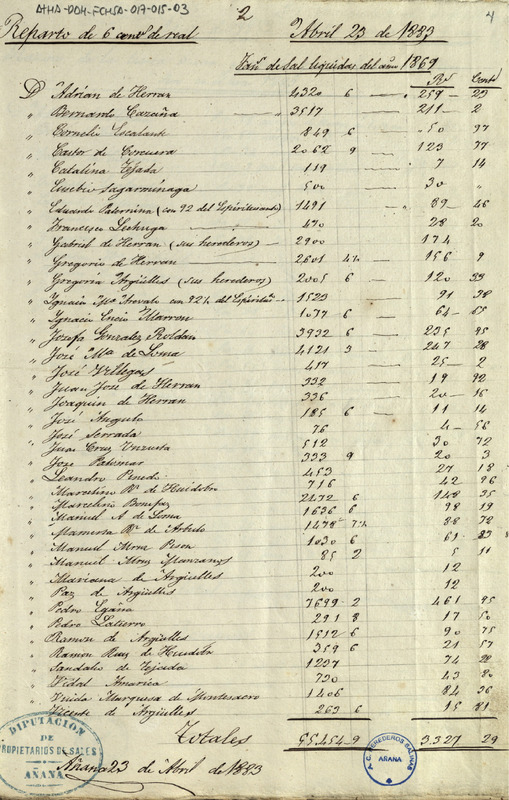 ATHA-DAH-FCHSA-017-015-03
2
4
Reparto de 6 cents de real
Abril 23 de 1883
Fans de sal liquidas del año 1869
Rs Cents
D Adrian de Herran 4320 6 259 23
" Bernardo Cazaña 3517 211 2
" Cornelio Escalante 849 6 50 97
" Castor de Corcuera 2062 9 123 77
" Catalina Tejada 119 7 14
" Eusebio Lagarminaga 500 30 "
" Eduardo Paternina (con 92 del Espiritusanto) 1491 89 46
" Francisco Lechuga 470 28 20
" Gabriel de Herran (sus herederos) 2900 174
" Gregorio de Herran 2601 4½ 156 9
" Gregoria Argüelles (sus herederos) 2005 6 120 33
" Ignacio Ma Arevalo con 92½ del Espiritus 1523 91 38
" Ignacio Encio Marron 1077 6 64 65
" Josefa Gonzalez Roldan 3932 6 235 95
" José Ma de Loma 4121 3 247 28
" José Villegas 417 25 2
" Juan José de Herran 332 19 92
" Joaquin de Herran 336 20 16
" José Angulo 185 6 11 14
" José Serrada 76 4 56
" Juan Cruz Unzueta 512 30 72
" José Palomar 333 9 20 3
" Leandro Pinedo 453 27 18
" Marcelino Rz de Huidobro 716 42 96
" Marcelino Bonifaz 2472 6 148 35
" Manuel A de Loma 1636 6 98 19
" Mamerta Rz de Arbulo 1478 7½ 88 72
" Manuel Mrnz Pison 1030 6 61 83
" Manuel Mrnz Manzanos 85 2 5 11
" Mariana de Argüelles 200 12
" Paz de Argüelles 200 12
" Pedro Egaña 7699 2 461 95
" Pedro Latierro 291 8 17 50
" Ramon de Argüelles 1512 6 90 75
" Ramon Ruiz de Huidobro 359 6 21 57
" Sandalio de Tejada 1237 74 22
" Vidal Amarica 730 43 80
" Viuda Marquesa de Montesacro 1406 84 36
" Vicente de Argüelles 263 6 15 81
Totales 55454-9 3327 29
Añana 23 de Abril de 1883
DIPUTACION DE PROPIETARIOS DE SALES
AÑANA
A.C. HEREDEROS SALINAS
AÑANA